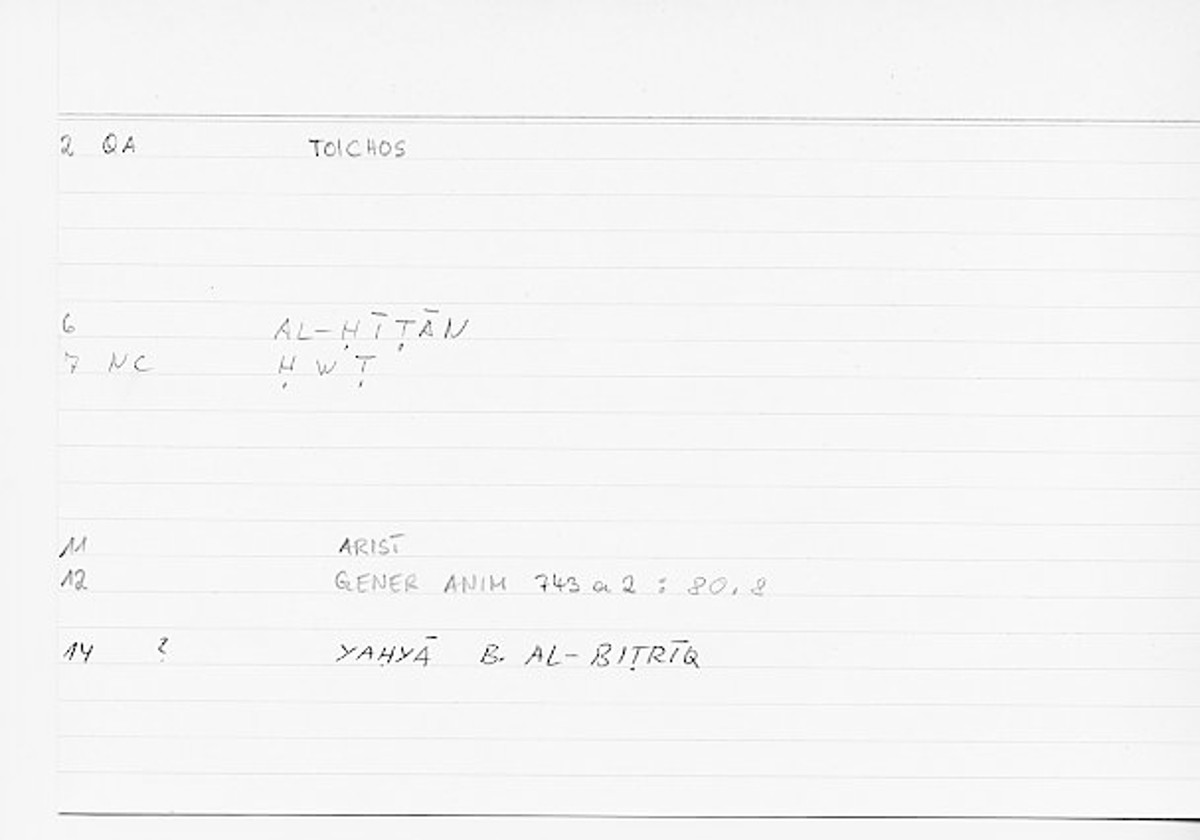 2 QA TOICHOS
6 AL-ḤĪṬĀN
7 NC Ḥ W Ṭ
11 ARIST
12 GENER ANIM 743 a 2 : 80,8
14 ? YAḤYĀ B. AL-BIṬRĪQ